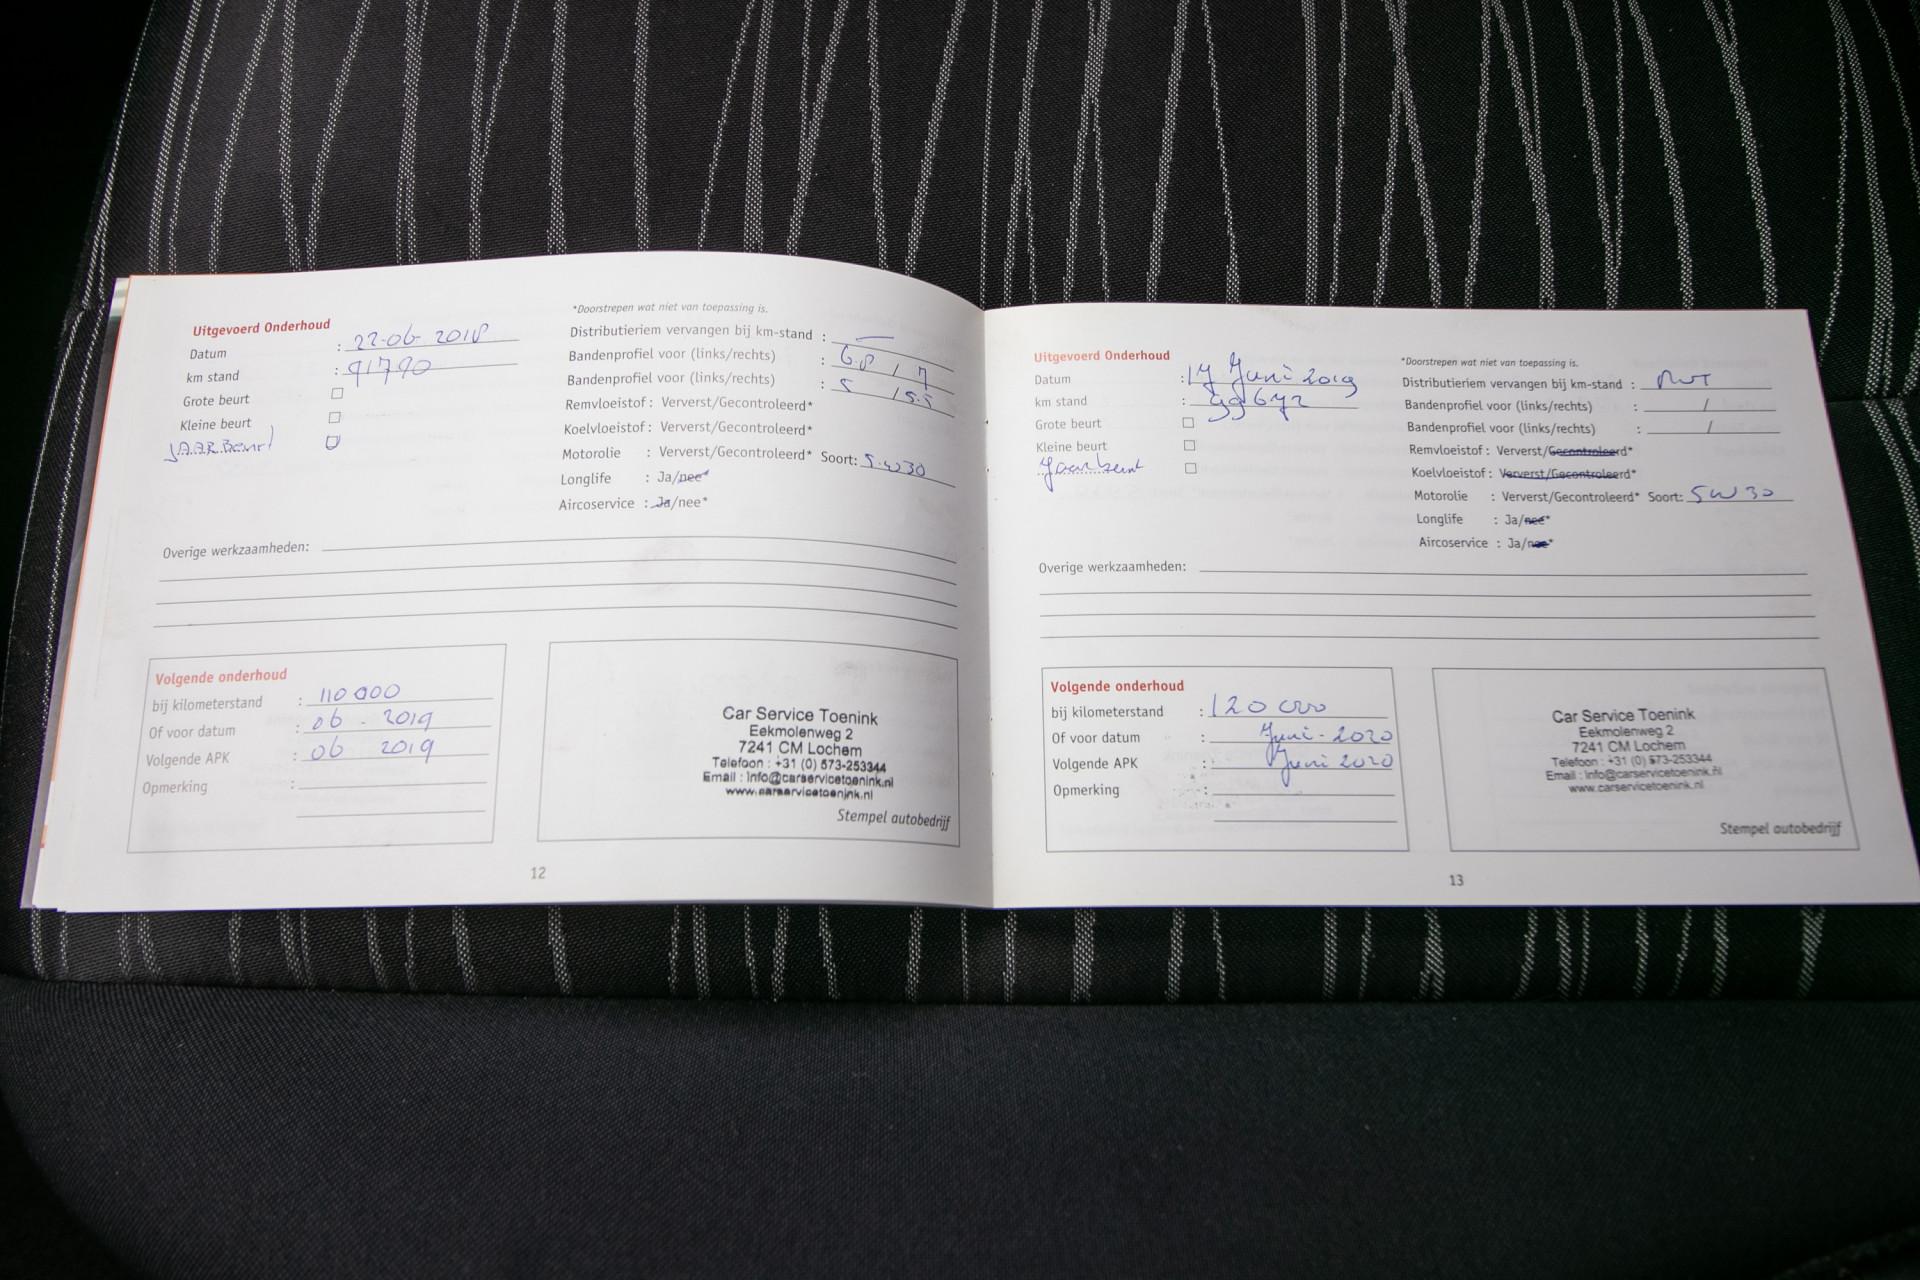 Uitgevoerd Onderhoud
Datum : 22-06-2018
km stand : 91790
Grote beurt
Kleine beurt
JAARBeurt
*Doorstrepen wat niet van toepassing is.
Distributieriem vervangen bij km-stand : —
Bandenprofiel voor (links/rechts) : 6.8 / 7
Bandenprofiel voor (links/rechts) : 5 / 5.5
Remvloeistof : Ververst/Gecontroleerd*
Koelvloeistof : Ververst/Gecontroleerd*
Motorolie : Ververst/Gecontroleerd* Soort: 5.w30
Longlife : Ja/nee*
Aircoservice : Ja/nee*
Overige werkzaamheden:
Volgende onderhoud
bij kilometerstand : 110 000
Of voor datum : 06 - 2019
Volgende APK : 06 2019
Opmerking :
Car Service Toenink
Eekmolenweg 2
7241 CM Lochem
Telefoon : +31 (0) 573-253344
Email : info@carservicetoenink.nl
www.carservicetoenink.nl
Stempel autobedrijf
12
Uitgevoerd Onderhoud
Datum : 17 Juni 2019
km stand : 99672
Grote beurt
Kleine beurt
Jaarbeurt
*Doorstrepen wat niet van toepassing is.
Distributieriem vervangen bij km-stand :
Bandenprofiel voor (links/rechts) : /
Bandenprofiel voor (links/rechts) : /
Remvloeistof : Ververst/Gecontroleerd*
Koelvloeistof : Ververst/Gecontroleerd*
Motorolie : Ververst/Gecontroleerd* Soort: 5W30
Longlife : Ja/nee*
Aircoservice : Ja/nee*
Overige werkzaamheden:
Volgende onderhoud
bij kilometerstand : 120 000
Of voor datum : Juni - 2020
Volgende APK : Juni 2020
Opmerking :
Car Service Toenink
Eekmolenweg 2
7241 CM Lochem
Telefoon : +31 (0) 573-253344
Email : info@carservicetoenink.nl
www.carservicetoenink.nl
Stempel autobedrijf
13